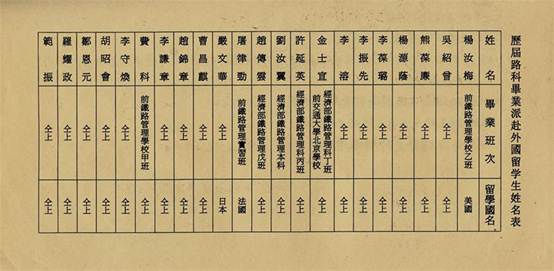 歷屆路科畢業派赴外國留學生姓名表
姓名 畢業班次 留學國名
楊汝梅 前鐵路管理學校乙班 美國
吳紹曾 仝上 仝上
熊葆廉 仝上 仝上
楊源蔭 仝上 仝上
李葆璐 仝上 仝上
李振先 仝上 仝上
李溶 仝上 仝上
金士宣 經濟部鐵路管理科丁班 前交通大學北京學校 仝上
許延英 經濟部鐵路管理科丙班 仝上
劉汝翼 經濟部鐵路管理本科 仝上
趙傳雲 經濟部鐵路管理戊班 仝上
屠律勤 前鐵路管理實習班 法國
嚴文華 仝上 日本
曹昌麒 仝上 仝上
趙錦章 仝上 仝上
李謙章 仝上 仝上
費科 前鐵路管理學校甲班 仝上
李守煥 仝上 仝上
胡昭會 仝上 仝上
鄒恩元 仝上 仝上
羅耀政 仝上 仝上
範振 仝上 仝上